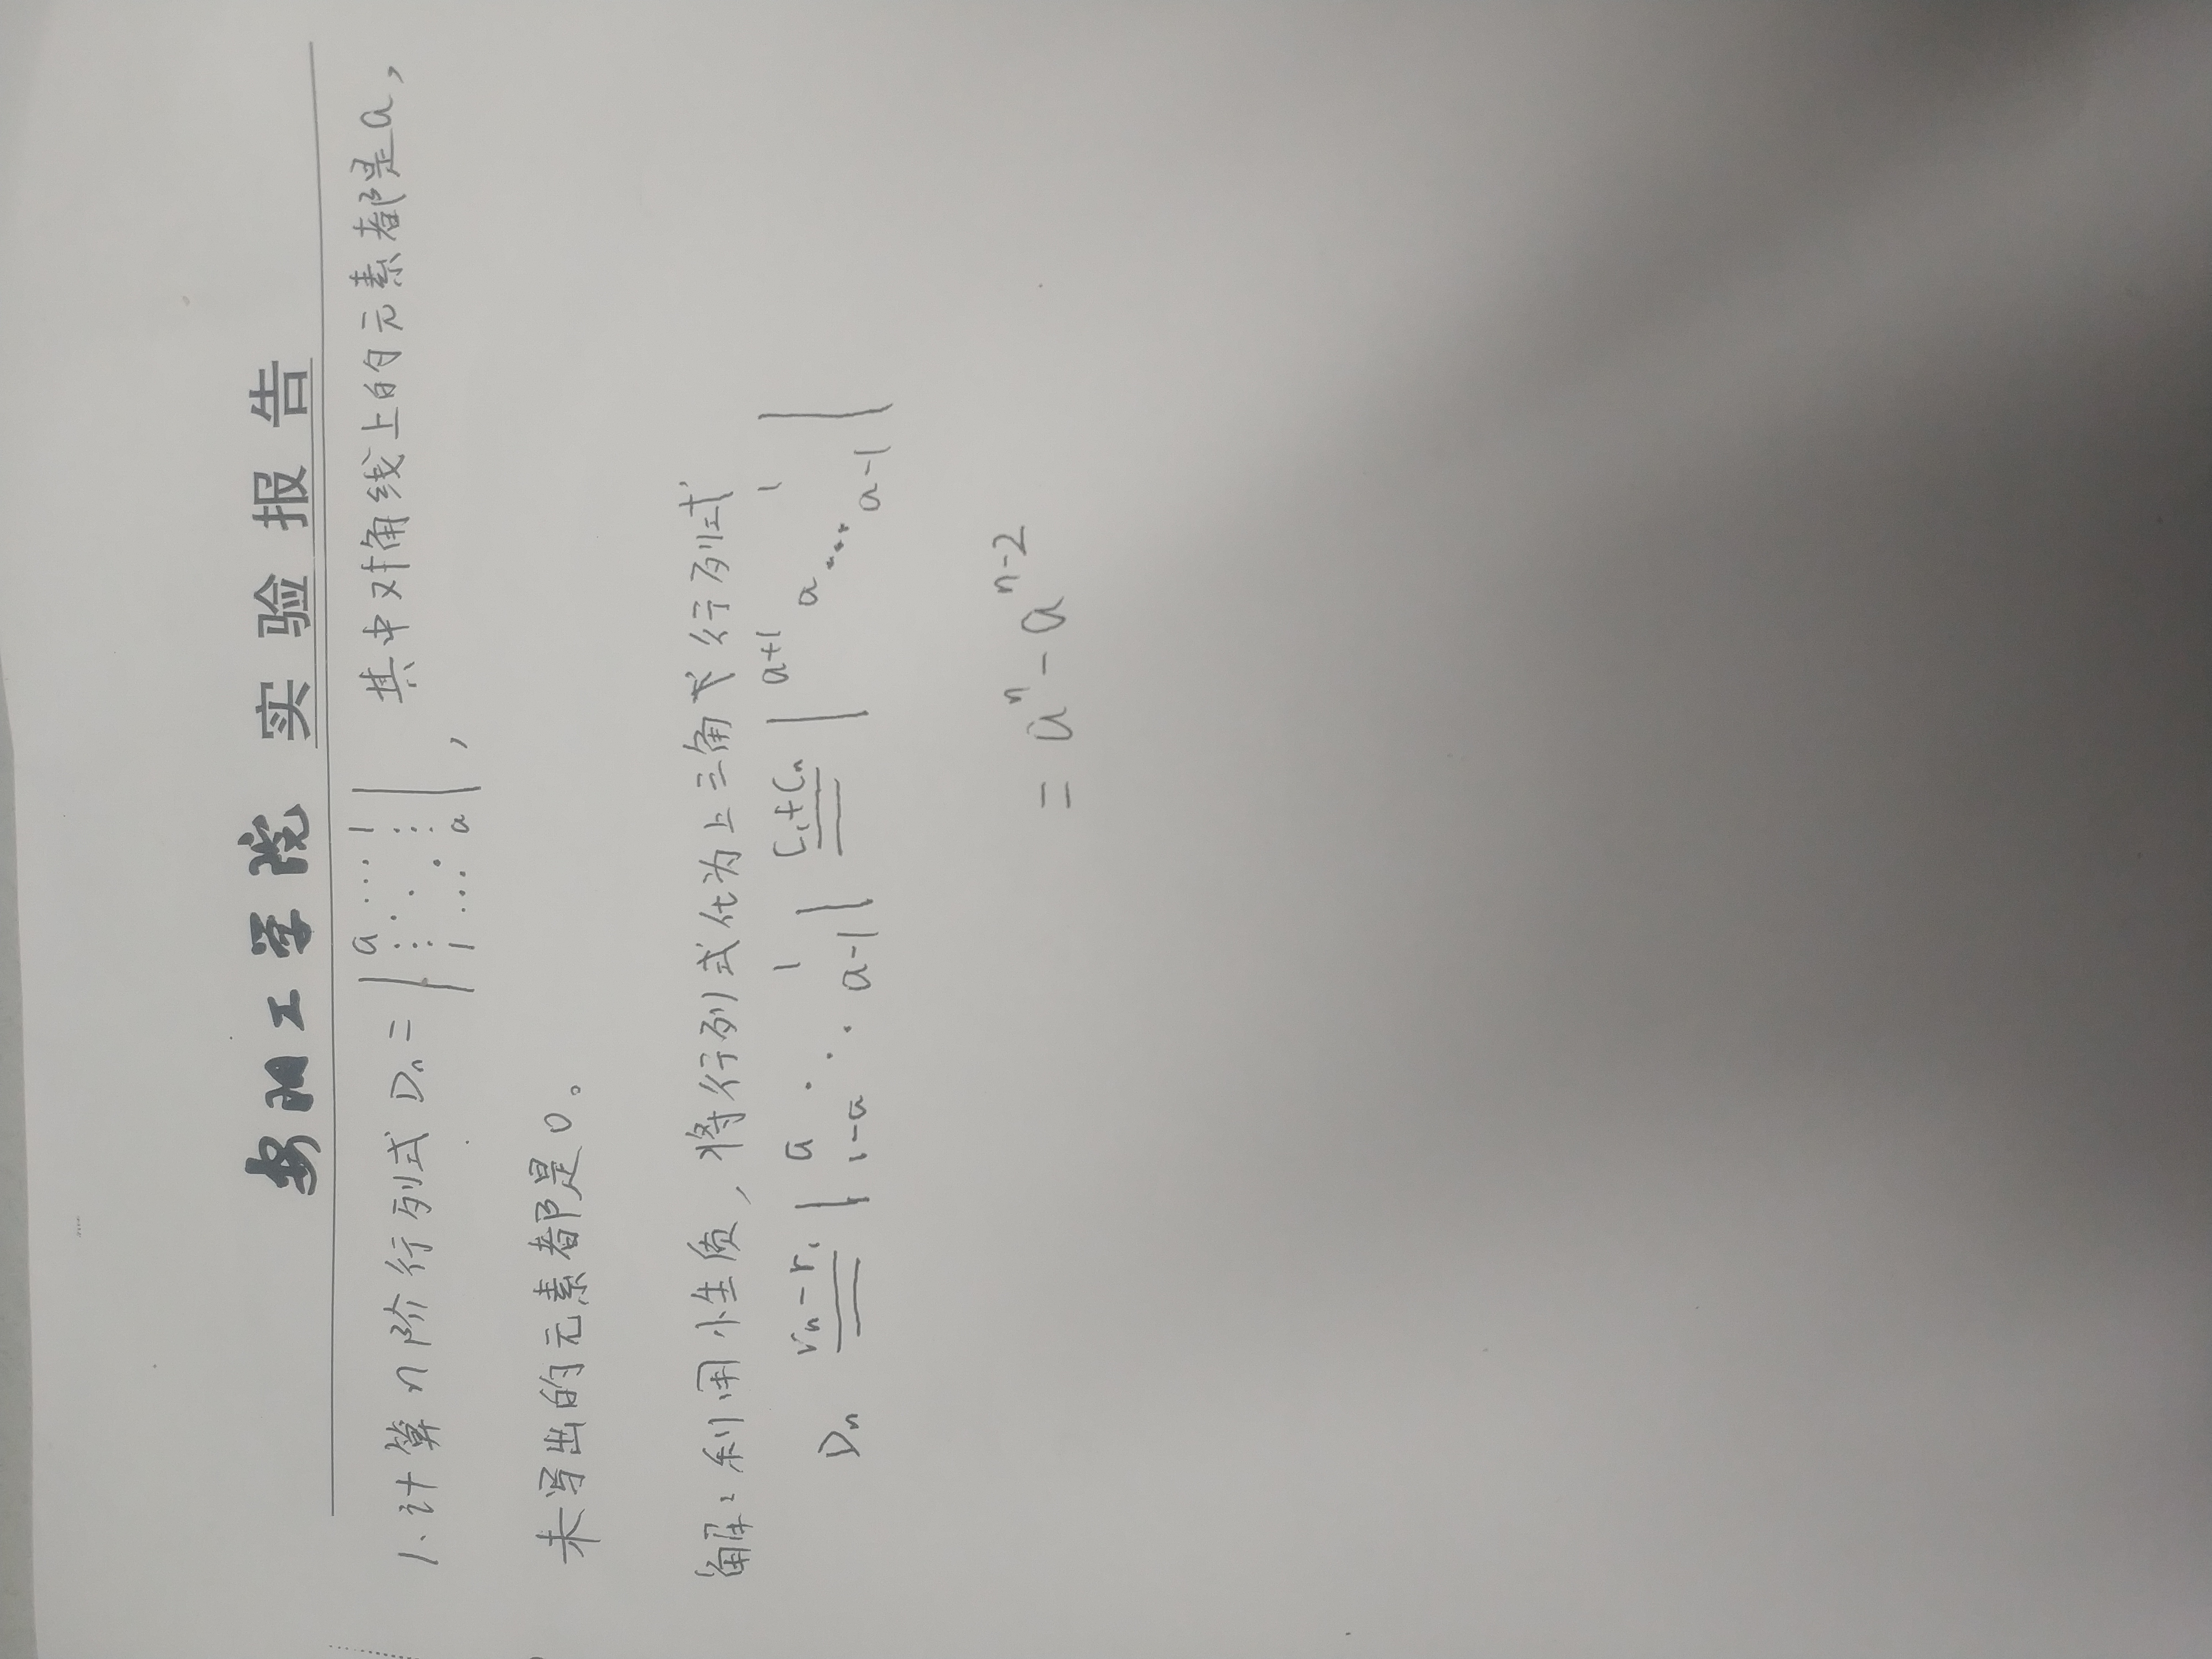 安阳工学院 实验报告
1.计算n阶行列式 Dn = | a ⋯ 1 ⋮ ⋱ ⋮ 1 ⋯ a |, 其中对角线上的元素都是a,
未写出的元素都是0。
解:利用性质,将行列式化为上三角式行列式
Dn rn-r1 | a ⋱ 1 1-a a-1 | c1+cn | a+1 1 a ⋱ a-1 |
= a^n - a^(n-2)